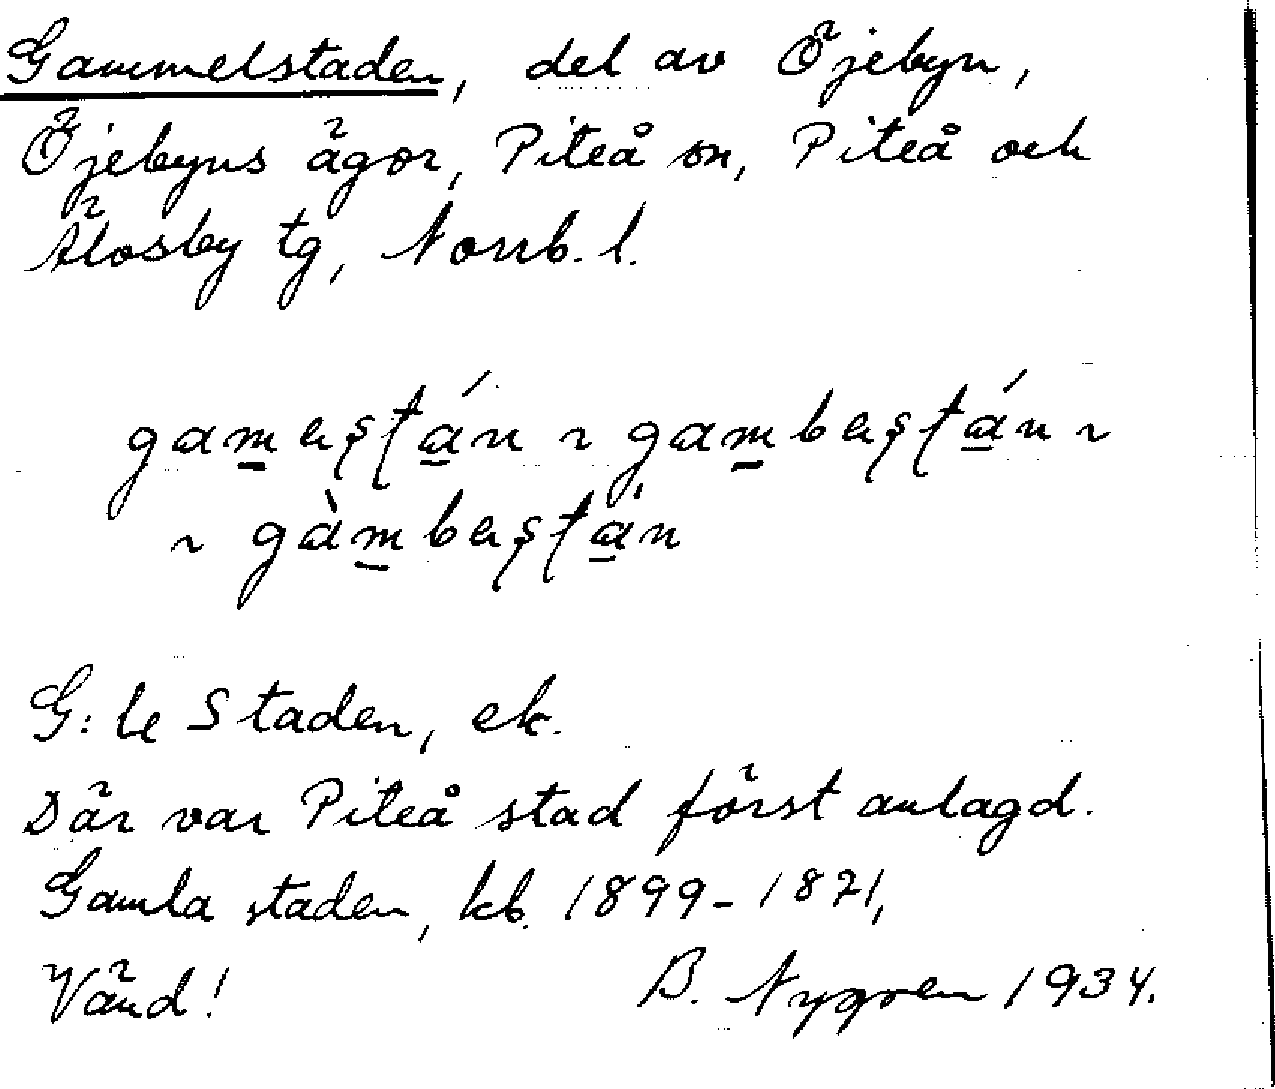 Gammelstaden, del av Öjebyn,
Öjebyns ägor, Piteå sn, Piteå och
Älvsby tg, Norrb. l.
G: le Staden, ek.
Där var Piteå stad först anlagd.
Gamla staden, kb. 1899-1871,
Vänd! B. Nygren 1934.